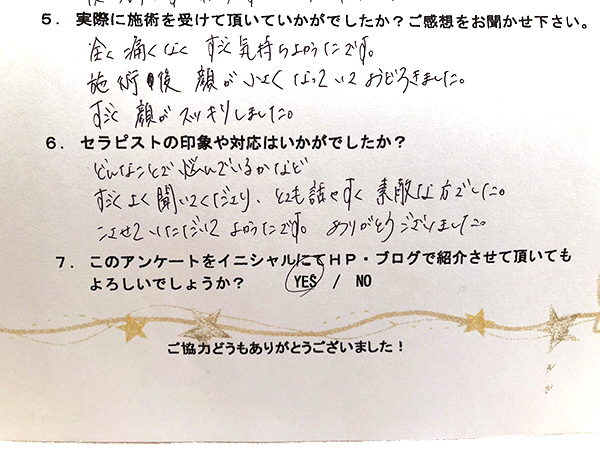 5. 実際に施術を受けて頂いていかがでしたか?ご感想をお聞かせ下さい。
全く痛くなく すごく気持ちよかったです。
施術後 顔が小さくなっていておどろきました。
すごく顔がスッキリしました。
6. セラピストの印象や対応はいかがでしたか?
どんなことで悩んでいるかなど
すごくよく聞いてくださり、とても話やすく素敵な方でした。
こさせていただいて よかったです。ありがとうございました。
7. このアンケートをイニシャルにてHP・ブログで紹介させて頂いても
よろしいでしょうか? YES / NO
ご協力どうもありがとうございました!